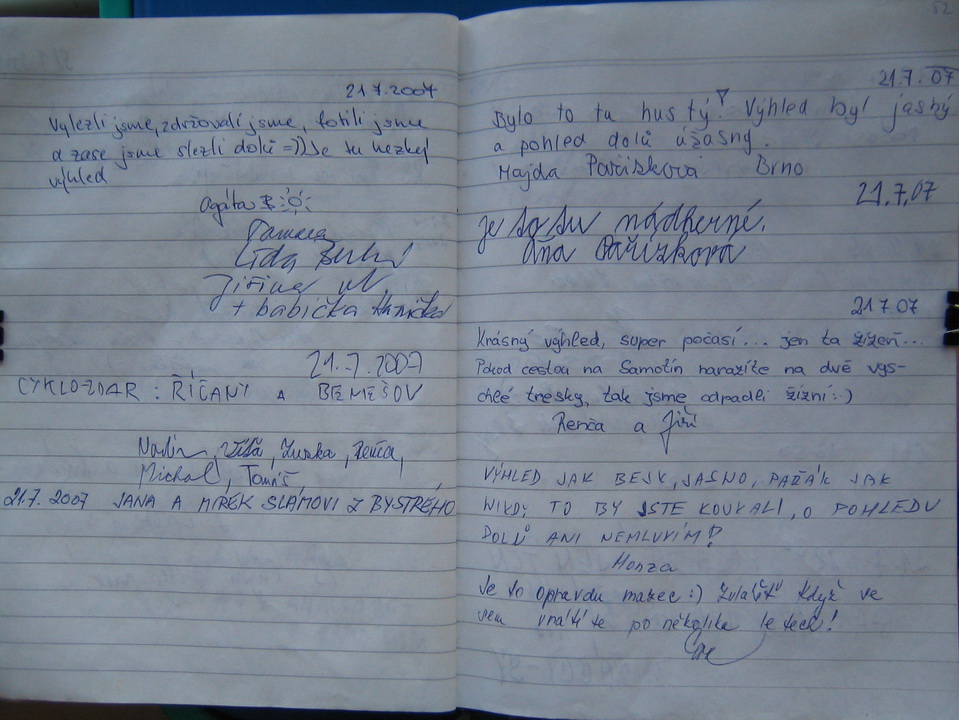 21.7.2007
Vylezli jsme, zdržovali jsme, fotili jsme
a zase jsme slezli dolů =)) Je tu hezkej
výhled
Agáta
Tamara
Lída
Jiřina
+ babička
21.7.2007
CYKLOZDAR : ŘÍČANY A BENEŠOV
Zuzka, Renča,
Michal, Tomáš,
21.7. 2007 JANA A MIREK SLÁMOVI Z BYSTRÉHO
52
21.7.07
Bylo to tu hustý! Výhled byl jasný
a pohled dolů úžasný.
Majda Pařízková Brno
21.7.07
je to tu nádherné.
Aňa Pařízková
21.7.07
Krásný výhled, super počasí... jen ta žízeň...
Pokud cestou na Samotín narazíte na dvě vys-
chlé tresky, tak jsme odpadli žízní :)
Renča a Jiří
VÝHLED JAK BEJK, JASNO, PAŘÁK JAK
NIKDY TO BY JSTE KOUKALI, O POHLEDU
DOLŮ ANI NEMLUVÍM!
Honza
Je to opravdu mazec :) Zvlášťě když se
sem vrátíte po několika letech!